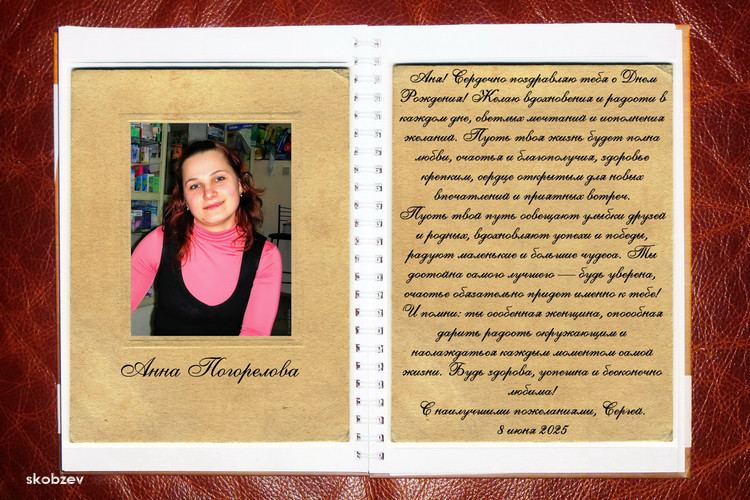 Анна Погорелова
Аня! Сердечно поздравляю тебя с Днем
Рождения! Желаю вдохновения и радости в
каждом дне, светлых мечтаний и исполнения
желаний. Пусть твоя жизнь будет полна
любви, счастья и благополучия, здоровье
крепким, сердце открытым для новых
впечатлений и приятных встреч.
Пусть твой путь освещают улыбки друзей
и родных, вдохновляют успехи и победы,
радуют маленькие и большие чудеса. Ты
достойна самого лучшего — будь уверена,
счастье обязательно придет именно к тебе!
И помни: ты особенная женщина, способная
дарить радость окружающим и
наслаждаться каждым моментом самой
жизни. Будь здорова, успешна и бесконечно
любима!
С наилучшими пожеланиями, Сергей.
8 июня 2025
skobzev